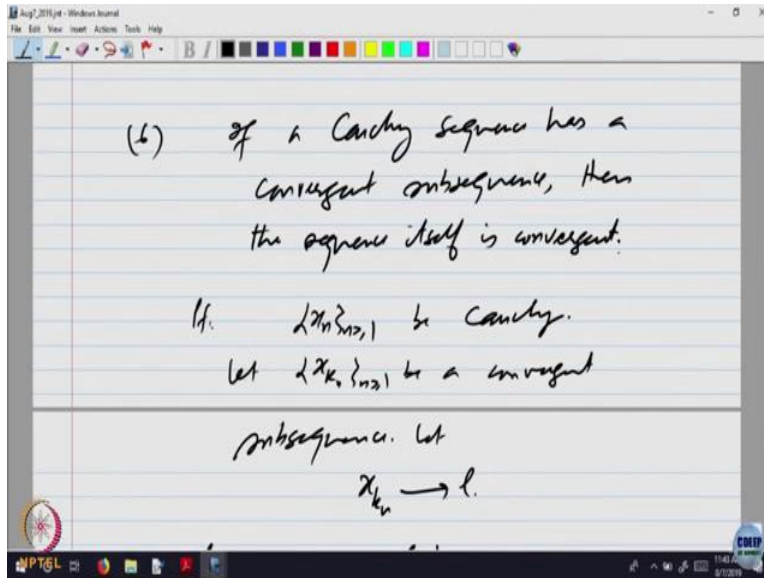 Aug7_2019.jnt - Windows Journal
File Edit View Insert Actions Tools Help
B I
(6) If a Cauchy sequence has a
convergent subsequence, then
the sequence itself is convergent.
Pf. {x_n}_{n≥1} be Cauchy.
Let {x_{k_n}}_{n≥1} be a convergent
subsequence. Let
x_{k_n} → l.
NPTEL
CDEEP
IIT BOMBAY
8/7/2019